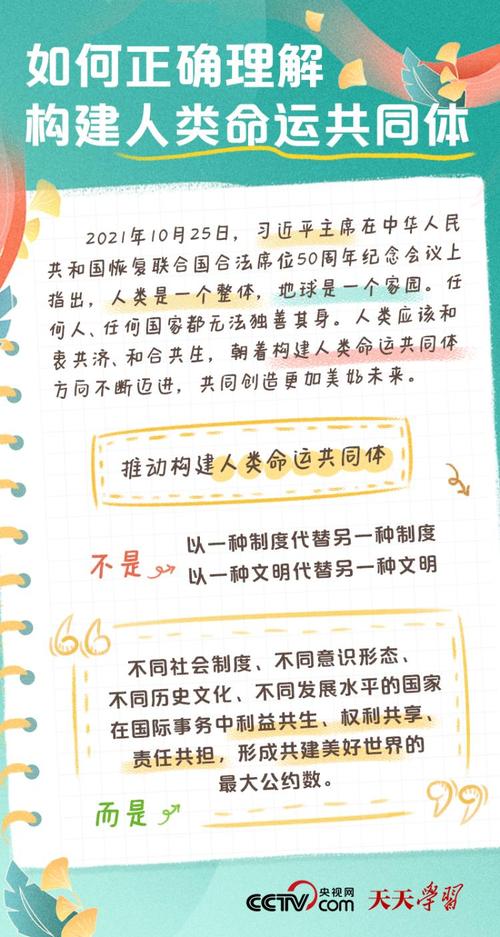 如何正确理解
构建人类命运共同体
2021年10月25日，习近平主席在中华人民
共和国恢复联合国合法席位50周年纪念会议上
指出，人类是一个整体，地球是一个家园。任
何人、任何国家都无法独善其身。人类应该和
衷共济、和合共生，朝着构建人类命运共同体
方向不断迈进，共同创造更加美好未来。
推动构建人类命运共同体
不是
以一种制度代替另一种制度
以一种文明代替另一种文明
不同社会制度、不同意识形态、
不同历史文化、不同发展水平的国家
在国际事务中利益共生、权利共享、
责任共担，形成共建美好世界的
最大公约数。
而是
CCTV央视网.com 天天学習